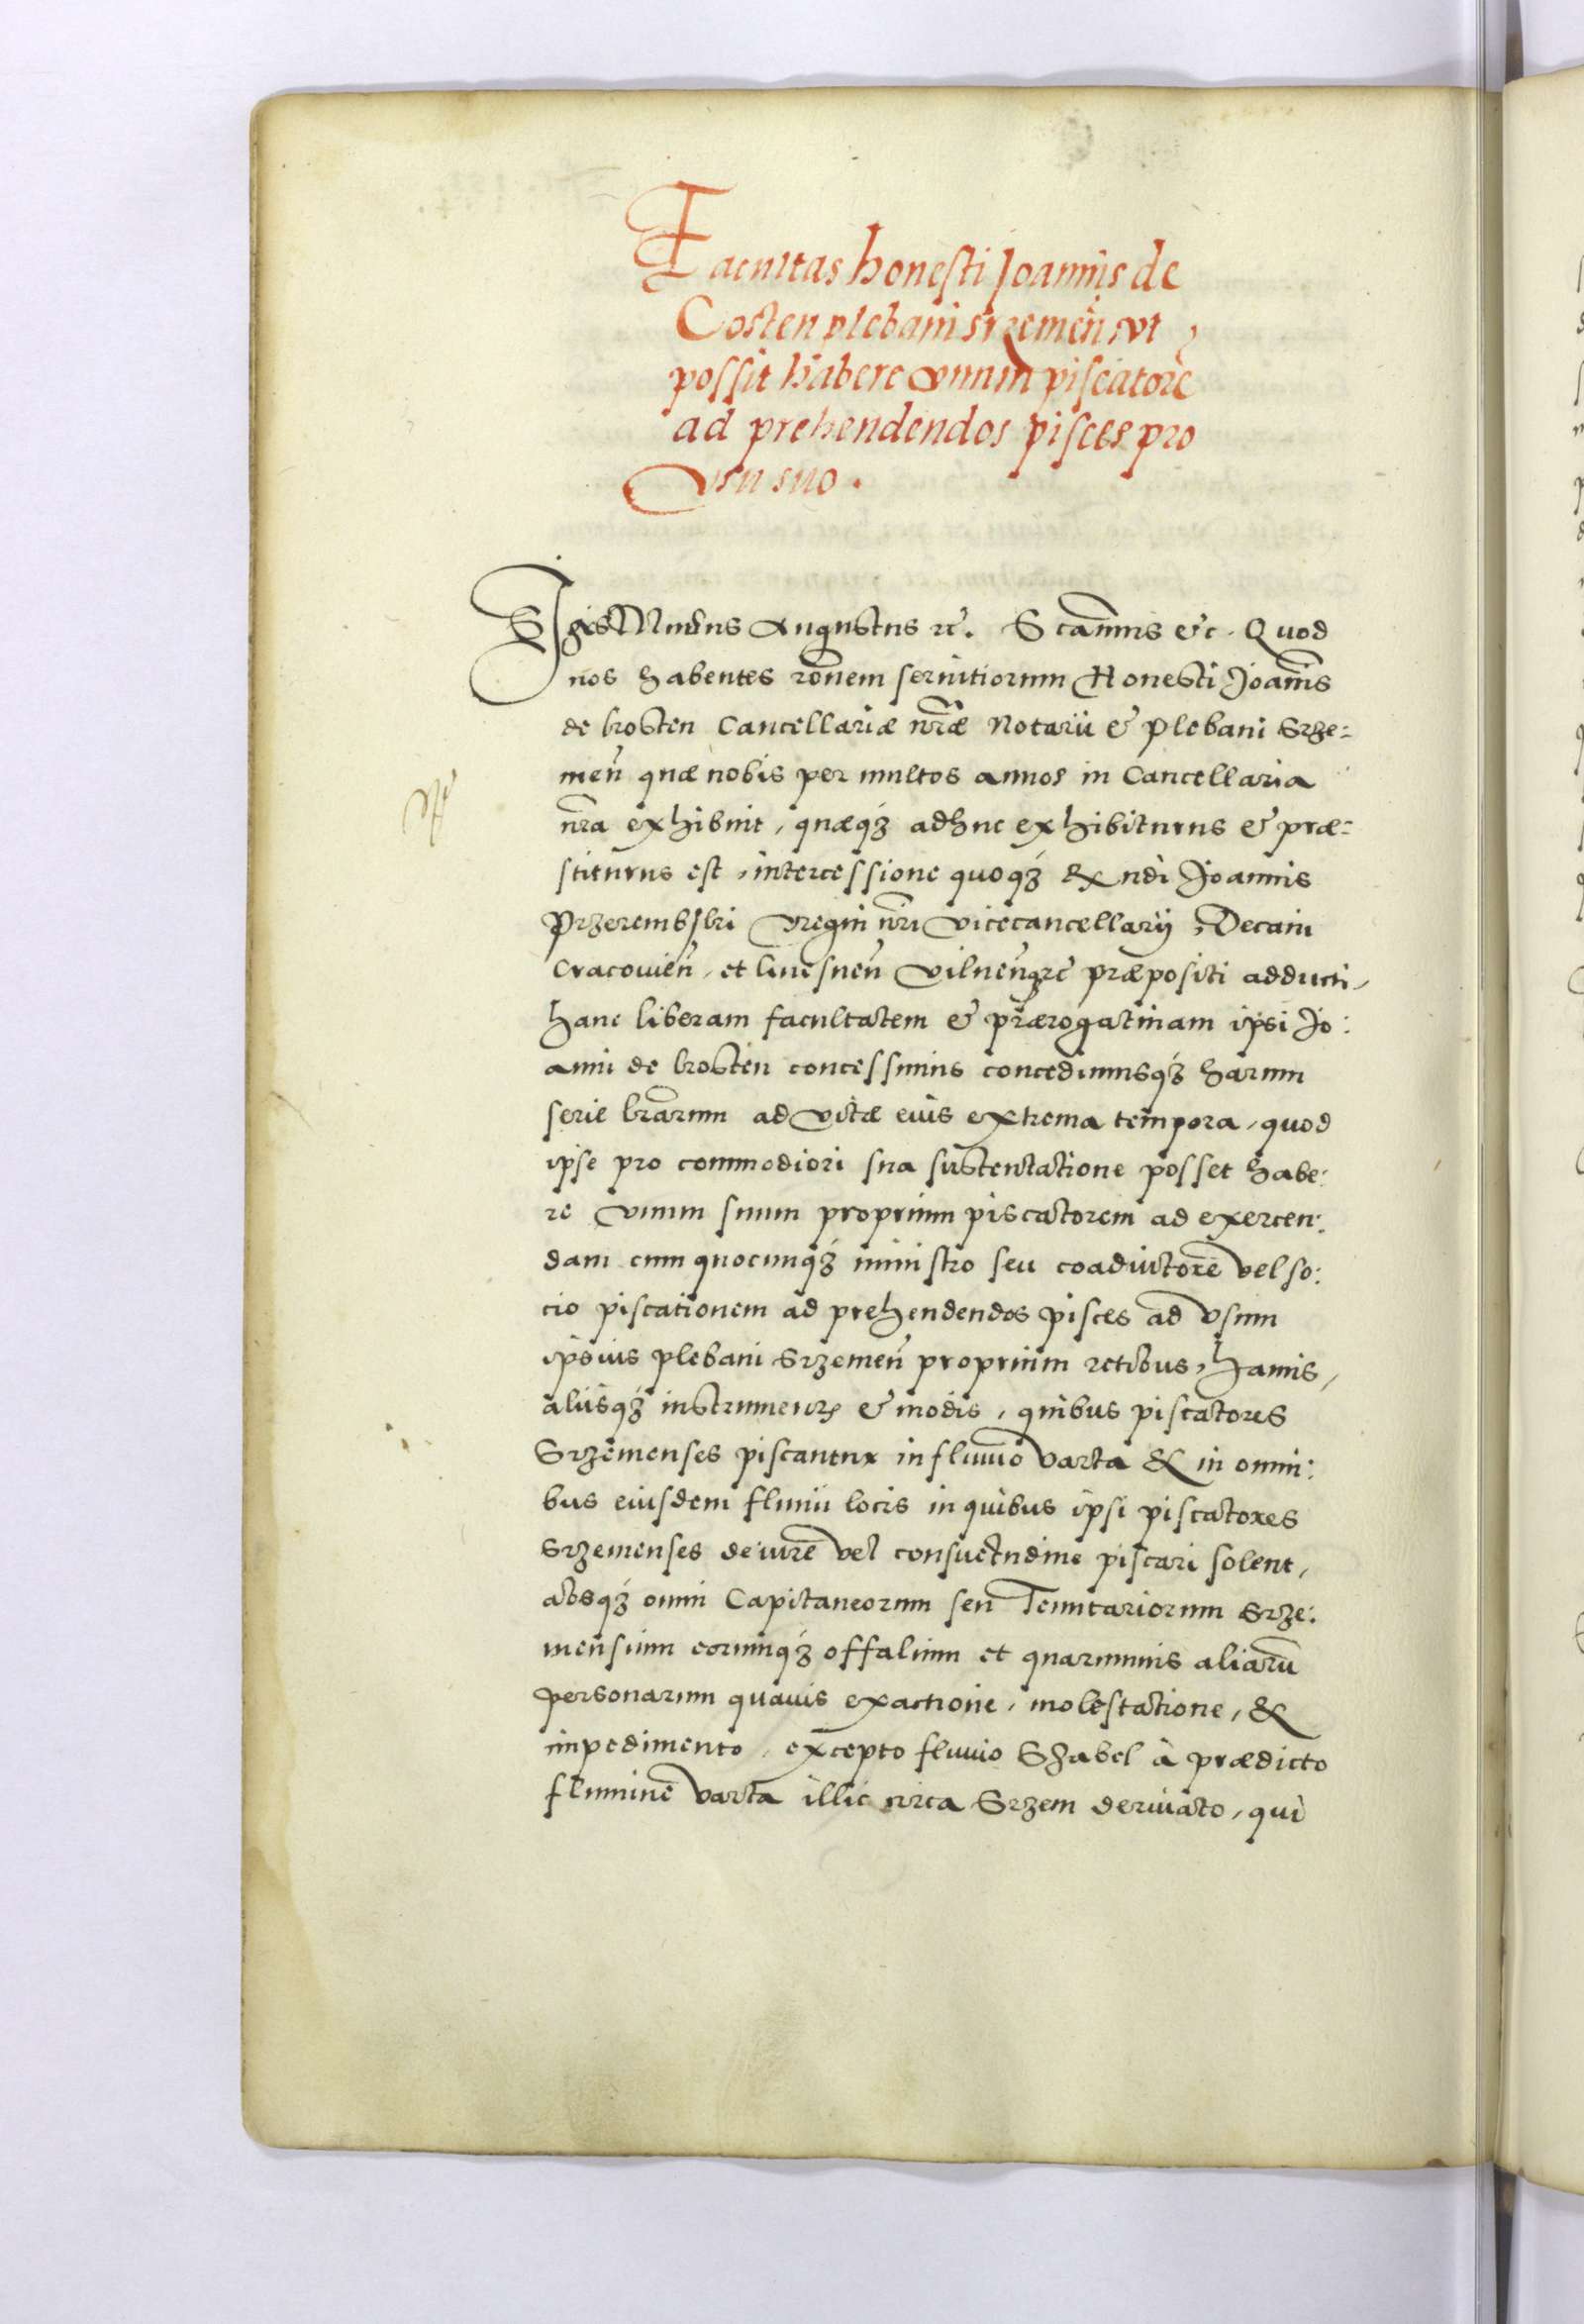 Facultas honesti Joannis de
Costen plebani srzemen̄ vt
possit habere vnum piscatorē
ad prehendendos pisces pro
Vsu suo.
SigisMundus Augustus &c. S canmus &c. Quod
nos habentes rōnem seruitiorum Honesti Joannis
de Kosten Cancellariæ nr̄æ Notarii & Plebani Srze:
men̄ quæ nobis per multos annos in Cancellaria
nr̄a exhibuit, quæqȝ adhuc exhibiturus & præ:
stiturus est, intercessione quoqȝ Rx̄ndi Joannis
Przerembski Vregni nr̄i Vicecancellarij, Decani
Cracouien̄, et Gnesnen̄ Vilnen̄qȝ &c præpositi adducti,
hanc liberam facultatem & prærogatiuam ipsi Jo:
anni de Kosten concessimus concedimusqȝ harum
serie lr̄arum ad vitæ eius extrema tempora, quod
ipse pro commodiori sua sustentatione posset habe:
re vnum suum proprium piscatorem ad exercen:
dam cum quocunqȝ ministro seu coadiutorē vel so:
cio piscationem ad prehendendos pisces ad vsum
ipsius plebani Srzemen̄ proprium retibus, hamis,
aliisqȝ instrumentꝭ & modis, quibus piscatores
Srzemenses piscantur in fluuio Varta & in omni:
bus eiusdem fluuii locis in quibus ipsi piscatores
Srzemenses de iurē vel consuetudine piscari solent,
absqȝ omni Capitaneorum seu Tenutariorum Srze:
mensium eorumqȝ offalium et quarumuis aliarū
personarum quauis exactione, molestatione, &
impedimento, excepto fluuio Szabel à prædicto
fluminē Varta illic circa Srzem deriuato, qui